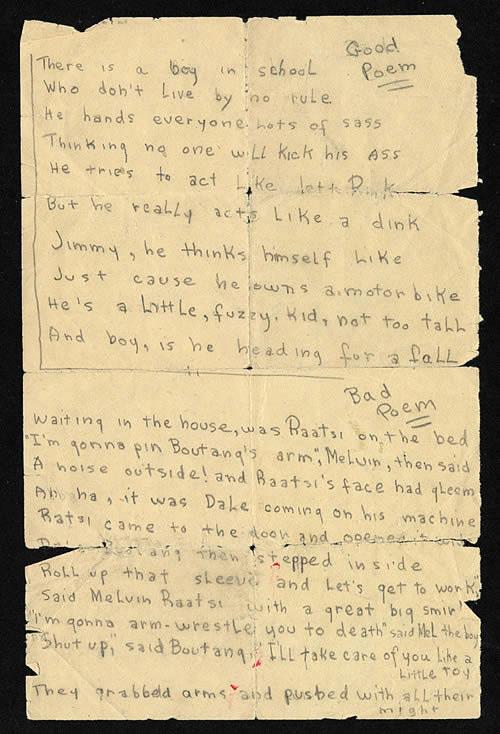 Good
Poem
There is a boy in school
Who don't Live by no rule
He hands everyone Lots of sass
Thinking no one will kick his Ass
He tries to act Like
But he really acts Like a dink
Jimmy, he thinks himself Like
Just cause he owns a motor bike
He's a Little, fuzzy, kid, not too tall
And boy, is he heading for a fall
Bad
Poem
Waiting in the house, was Raatsi on the bed
"I'm gonna pin Boutang's arm", Melvin, then said
A noise outside! and Raatsi's face had gleem
Ah ha, it was Dale coming on his machine
Ratsi came to the door and opened it
then stepped inside
Roll up that sleeve and Let's get to work"
said Melvin Raatsi with a great big smirk
"i'm gonna arm-wrestle you to death" said Mel the boy
"Shut up," said Boutang, "I'LL take care of you Like a
Little Toy
They grabbed arms and pushed with all their
might